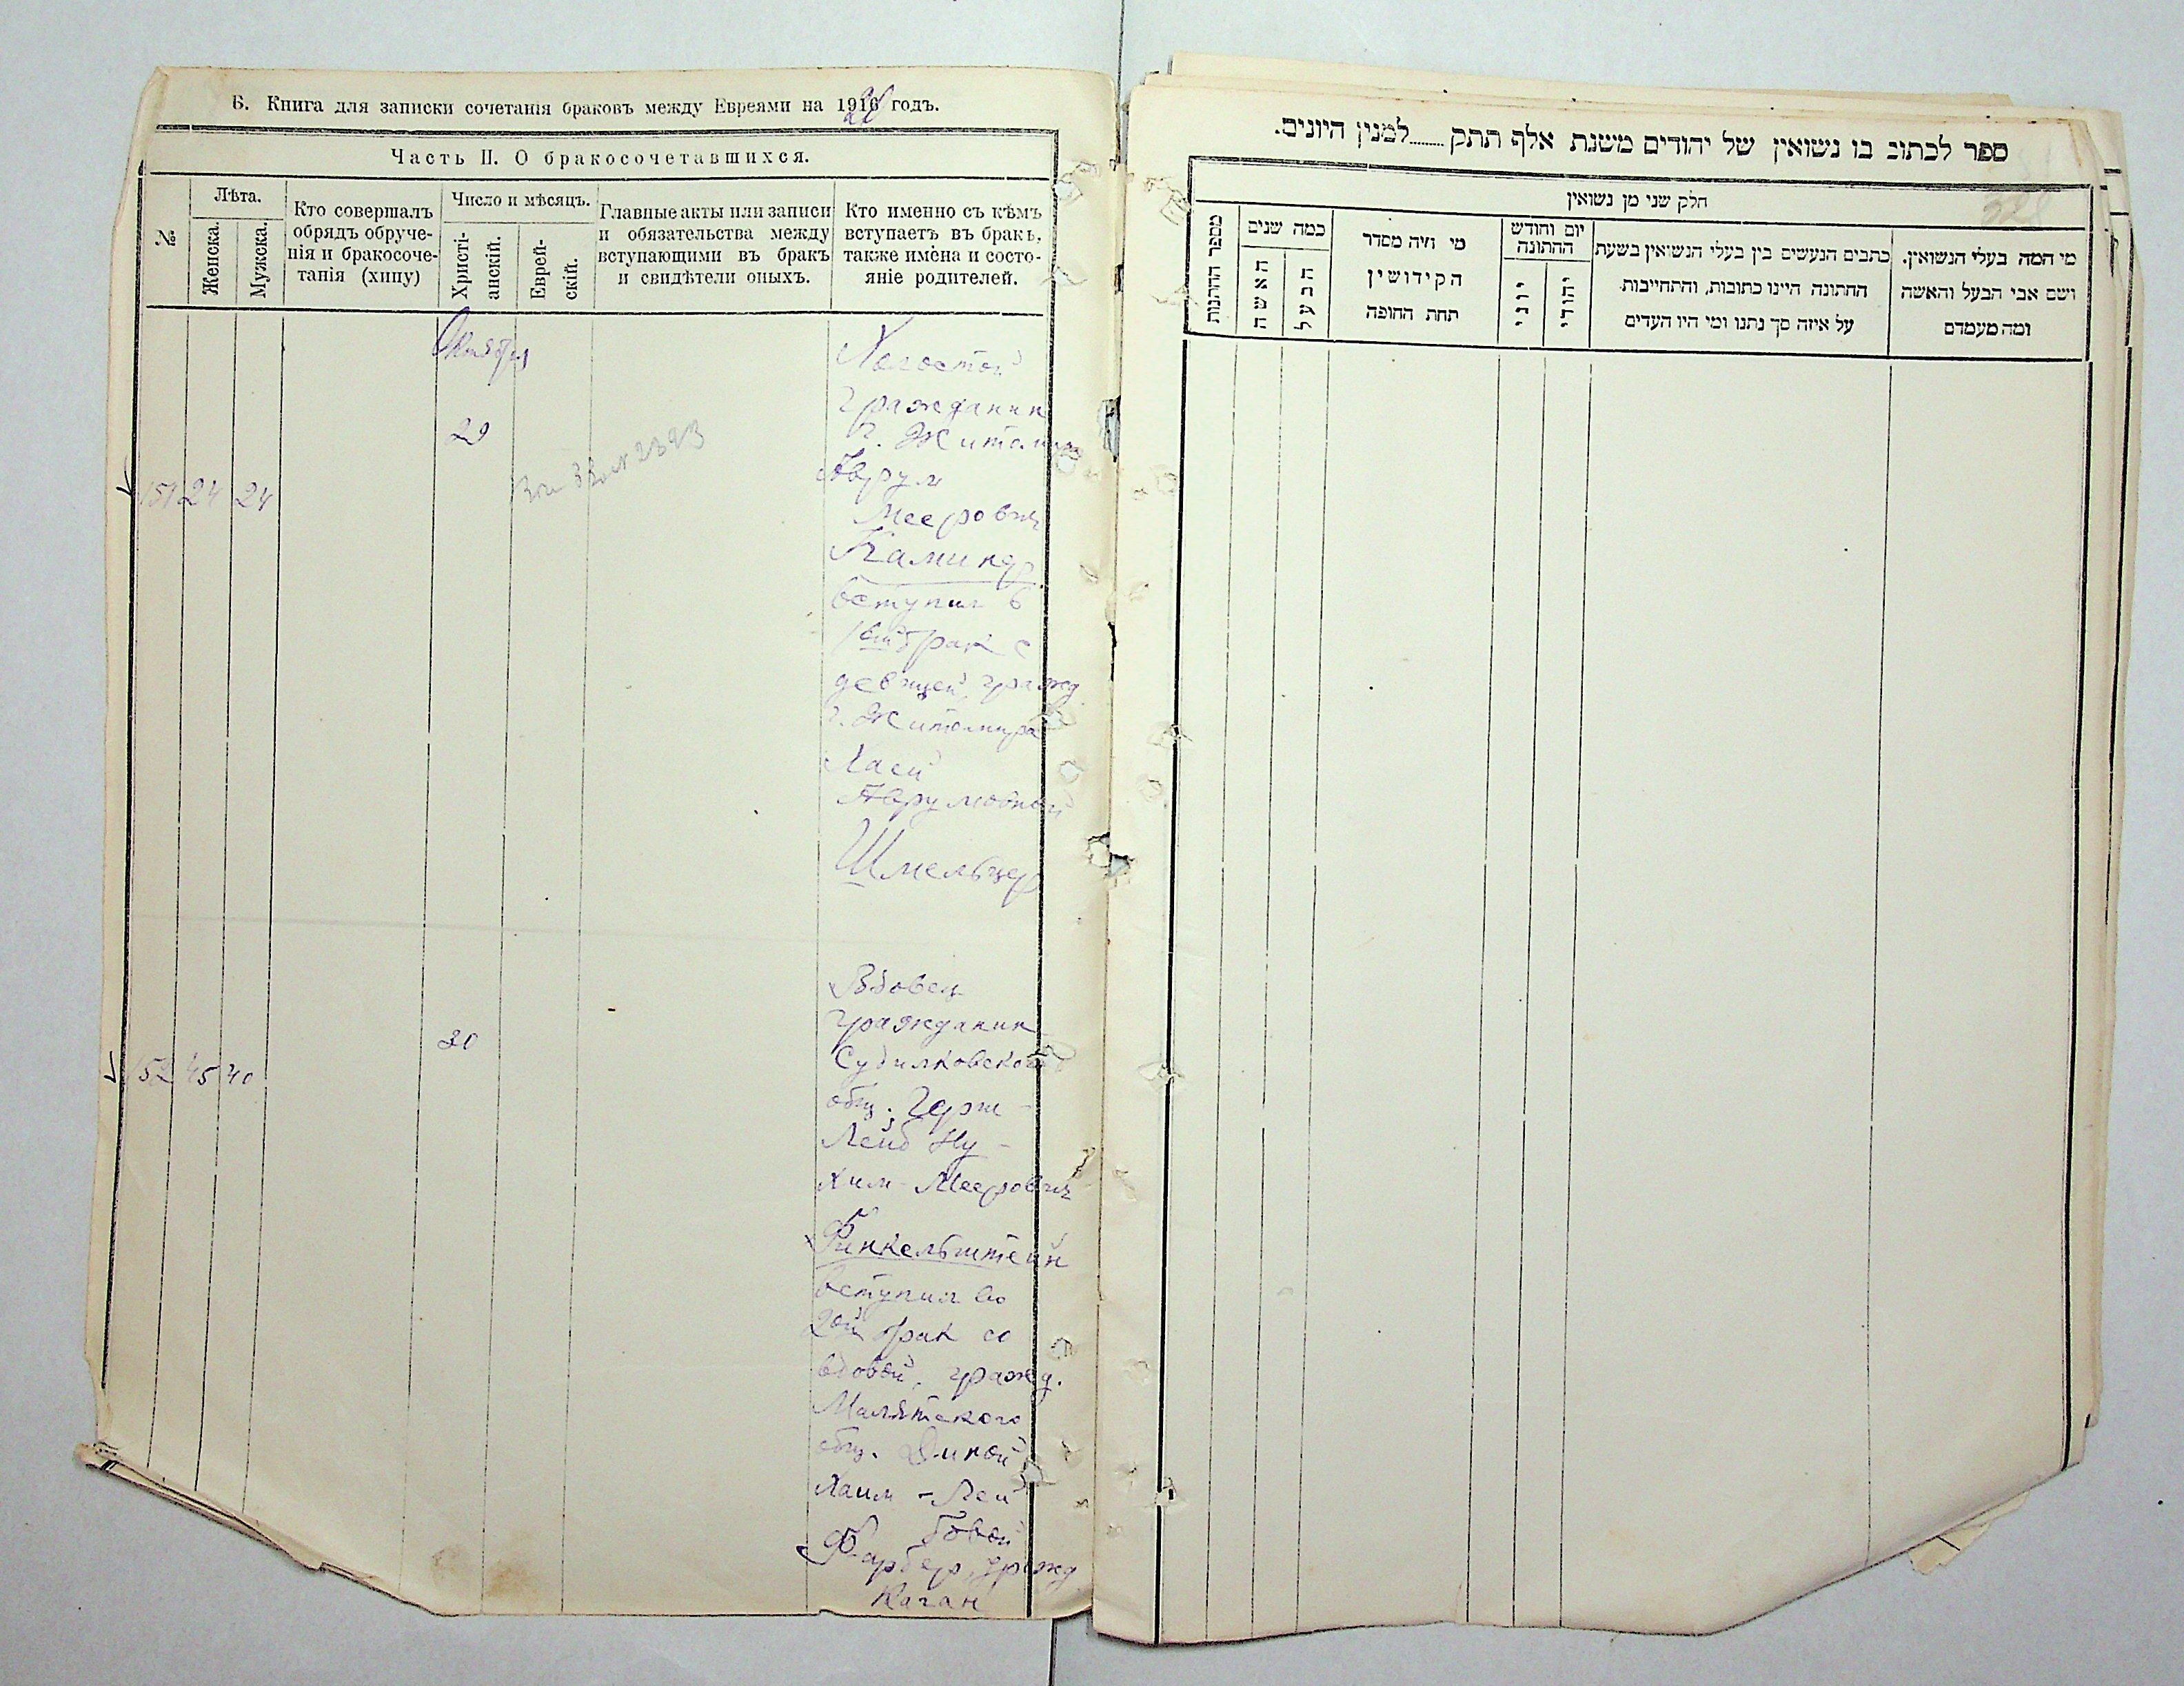 6. Книга для записки сочетанія браковъ между Евреями на 1920 годъ.
Часть II. О бракосочетавшихся.
№
Лѣта.
Женска.
Мужска.
Кто совершалъ
обрядъ обруче-
нія и бракосоче-
танія (хипу)
Число и мѣсяцъ.
Христі-
анскій.
Еврей-
скій.
Главные акты или записи
и обязательства между
вступающими въ бракъ
и свидѣтели оныхъ.
Кто именно съ кѣмъ
вступаетъ въ бракъ,
также имена и состо-
яніе родителей.
Октября
29
151 24 24
Холостой
гражданин
г. Житомира
Аврум
Меерович
Каминер
вступил в
1ый брак с
девицей, гражд.
г. Житомира
Хаей
Аврумовной
Шмельцер
30
152 45 40
Вдовец
гражданин
Судилковского
общ. Герш-
Лейб Ну-
хим-Меерович
Финкельштейн
вступил во
2ой брак со
вдовой, гражд.
общ. Диной
Хаим-Лей
бовой
Фарбер, урожд
Каган
ספר לכתוב בו נשואין של יהודים משנת אלף תתק........למנין היונים.
חלק שני מן נשואין
מספר החתנות
כמה שנים
האשה
הבעל
מי היה מסדר
הקידושין
תחת החופה
יום וחודש
החתונה
יוני
יהודי
כתבים הנעשים בין בעלי הנשואין בשעת
החתונה היינו כתובות, והתחייבות
על איזה סך נתנו ומי היו העדים
מי המה בעלי הנשואין.
ושם אבי הבעל והאשה
ומה מעמדם